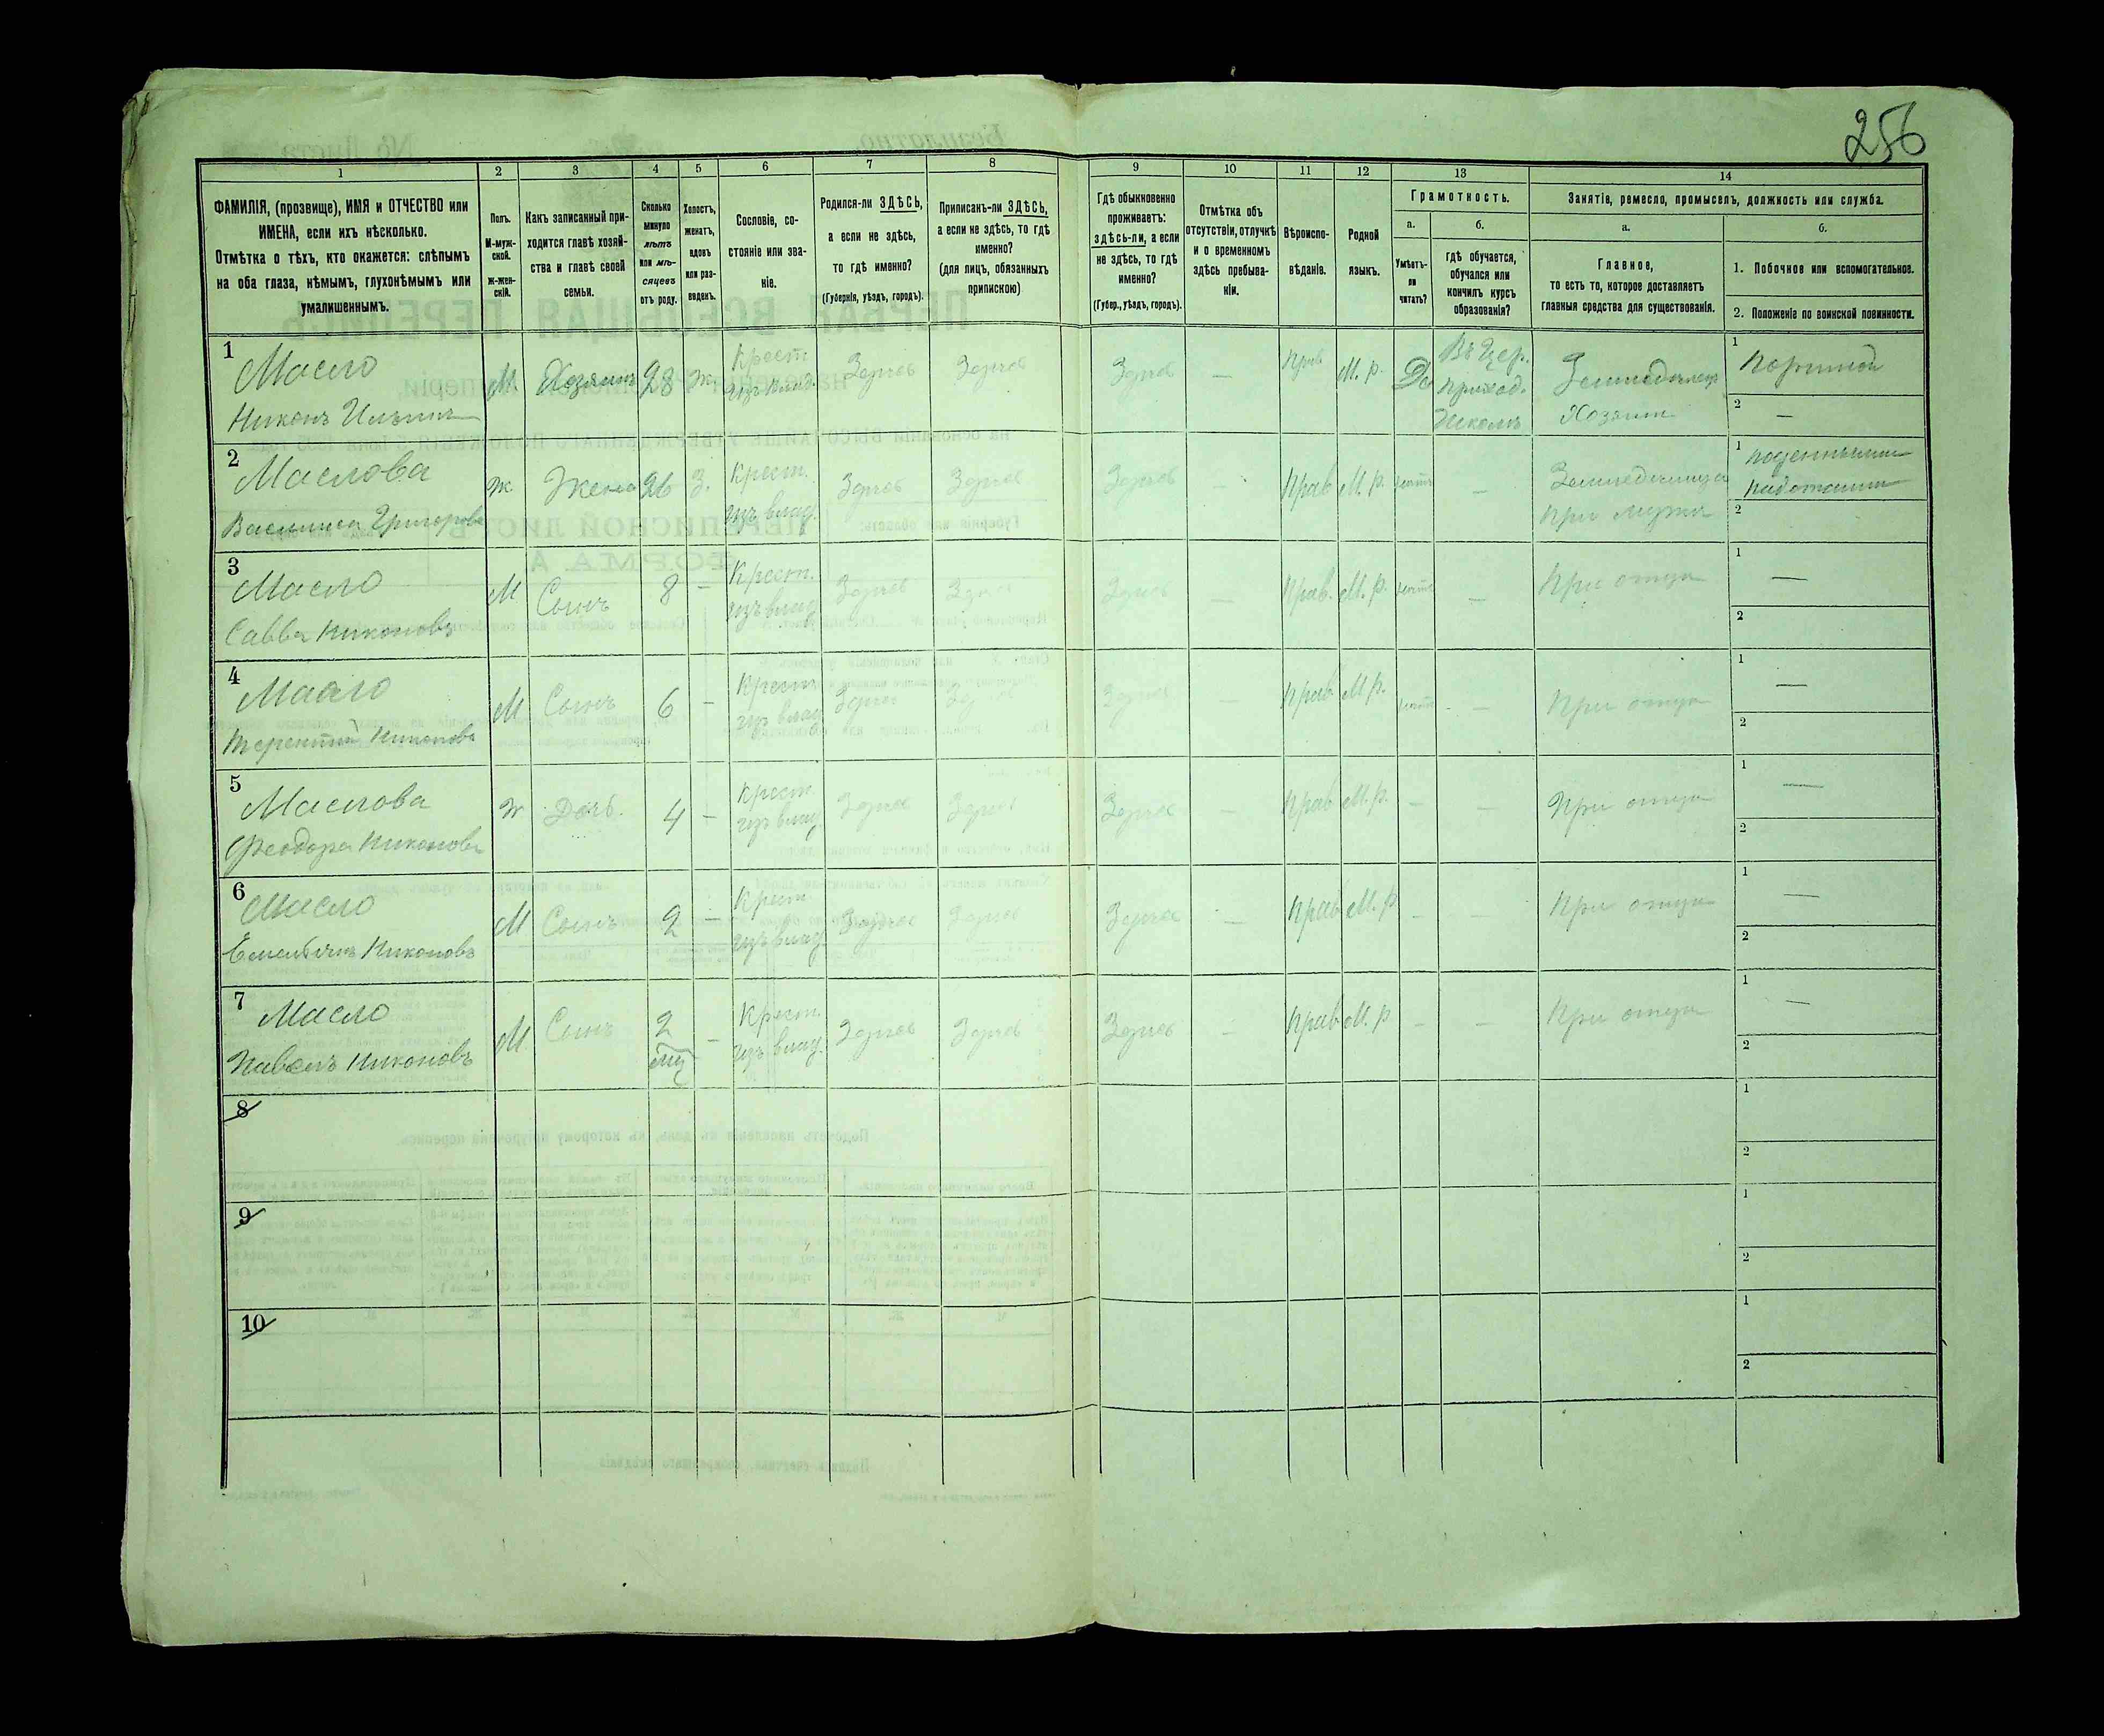 256
1 2 3 4 5 6 7 8 9 10 11 12 13 14
ФАМИЛІЯ, (прозвище), ИМЯ и ОТЧЕСТВО или
ИМЕНА, если ихъ нѣсколько.
Отмѣтка о тѣхъ, кто окажется: слѣпымъ
на оба глаза, нѣмымъ, глухонѣмымъ или
умалишеннымъ.
Полъ.
М-муж-
ской.
Ж-жен-
скій.
Какъ записанный при-
ходится главѣ хозяй-
ства и главѣ своей
семьи.
Сколько
минуло
лѣтъ
или мѣ-
сяцевъ
отъ роду.
Холостъ,
женатъ,
вдовъ
или раз-
веденъ.
Сословіе, со-
стояніе или зва-
ніе.
Родился-ли ЗДѢСЬ,
а если не здѣсь,
то гдѣ именно?
(Губернія, уѣздъ, городъ).
Приписанъ-ли ЗДѢСЬ,
а если не здѣсь, то гдѣ
именно?
(для лицъ, обязанныхъ
припискою)
Гдѣ обыкновенно
проживаетъ:
здѣсь-ли, а если
не здѣсь, то гдѣ
именно?
(Губер., уѣздъ, городъ).
Отмѣтка объ
отсутствіи, отлучкѣ
и о временномъ
здѣсь пребыва-
ніи.
Вѣроиспо-
вѣданіе.
Родной
языкъ.
Грамотность.
а.
Умѣетъ-
ли
читать?
б.
гдѣ обучается,
обучался или
кончилъ курсъ
образованія?
Занятіе, ремесло, промыселъ, должность или служба.
а.
Главное,
то есть то, которое доставляетъ
главныя средства для существованія.
б.
1. Побочное или вспомогательное.
2. Положеніе по воинской повинности.
1
Масло
Никонъ Ильинъ
М.
Хозяинъ
28
Ж.
Крест.
изъ влад.
Здѣсь
Здѣсь
Здѣсь
—
Прав
М. р.
Да
Въ Цер.
приход.
Школѣ
Земледѣлецъ
Хозяинъ
1
2 —
2
Маслова
Василиса Григорова
Ж.
Жена
26
З.
Крест.
изъ влад.
Здѣсь
Здѣсь
Здѣсь
—
Прав
М. р.
—
при мужи
1
2
3
Масло
Савва Никоновъ
М
Сынъ
8
—
Крест.
изъ влад
Здѣсь
Здѣсь
Здѣсь
—
Прав.
М. р.
—
При отцѣ
1 —
2
4
Масло
Терентій Никоновъ
М
Сынъ
6
—
Крест
изъ влад
Здѣсь
Здѣсь
—
Прав
М р.
—
При отцѣ
1 —
2
5
Маслова
Феодора Никонова
Ж
Дочь.
4
—
Крест
изъ влад
Здѣсь
Здѣсь
Здѣсь
Прав
М. р.
—
—
При отцѣ
1 —
2
6
Масло
Емельянъ Никоновъ
М
Сынъ
2
—
Крест
изъ влад
Здѣсь
Здѣсь
Здѣсь
—
Прав
М. р
—
—
При отцѣ
1 —
2
7
Масло
Павелъ Никоновъ
М
Сынъ
2
мц
—
Крест.
изъ влад.
Здѣсь
Здѣсь
Здѣсь
—
Прав
М. р
—
—
При отцѣ
1 —
2
8
1
2
9
1
2
10
1
2